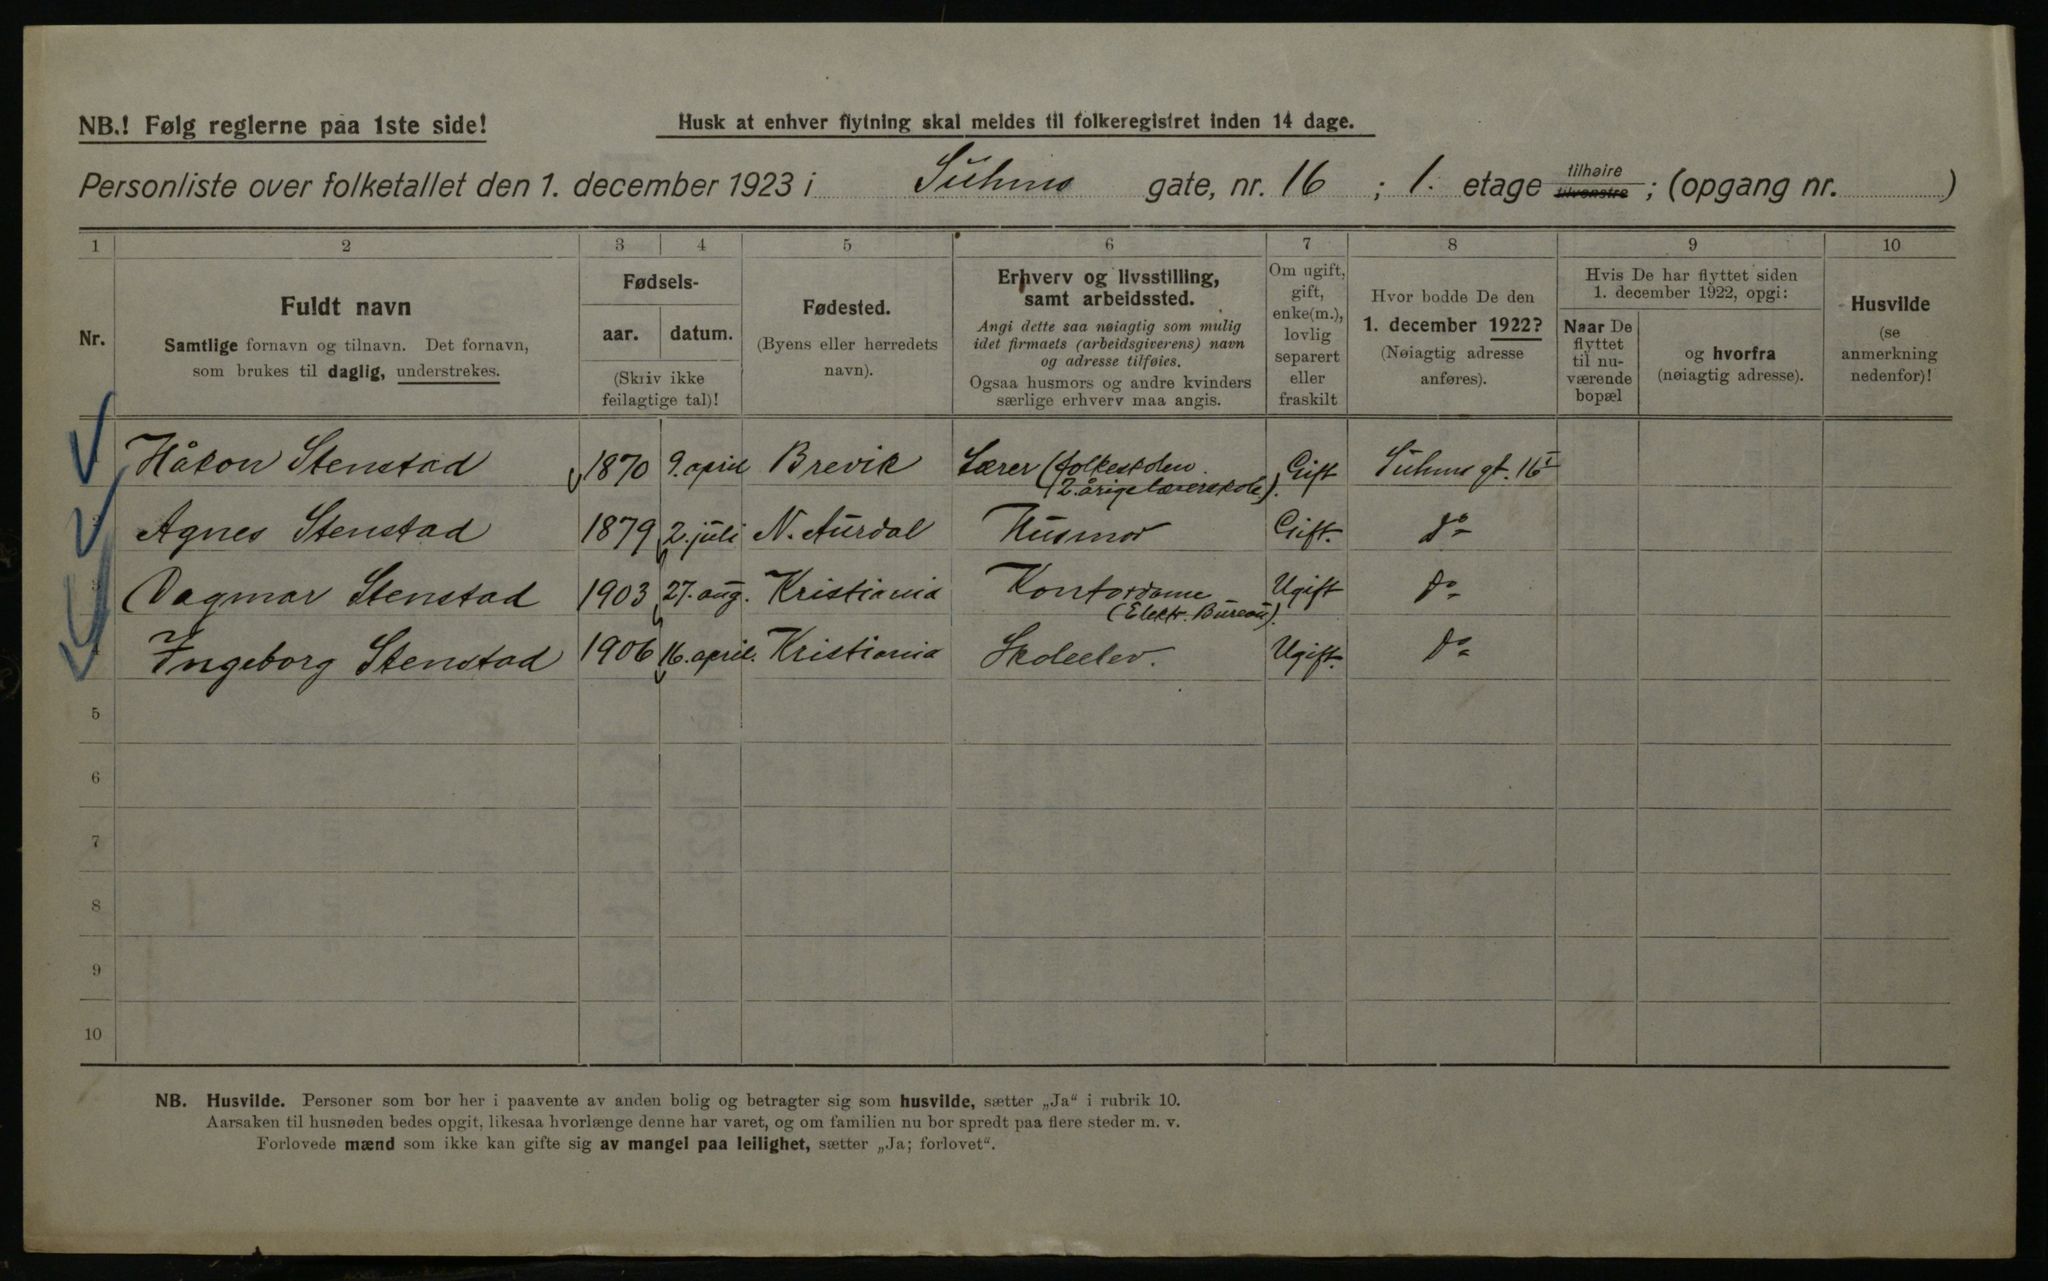 NB.! Følg reglerne paa 1ste side!
Husk at enhver flytning skal meldes til folkeregistret inden 14 dage.
Personliste over folketallet den 1. december 1923 i Suhms gate, nr. 16 ; 1. etage tilhøire tilvenstre ; (opgang nr. )
1 2 3 4 5 6 7 8 9 10
Nr.
Fuldt navn
Samtlige fornavn og tilnavn. Det fornavn,
som brukes til daglig, understrekes.
Fødsels-
aar. datum.
(Skriv ikke
feilagtige tal)!
Fødested.
(Byens eller herredets
navn).
Erhverv og livsstilling,
samt arbeidssted.
Angi dette saa nøiagtig som mulig
idet firmaets (arbeidsgiverens) navn
og adresse tilføies.
Ogsaa husmors og andre kvinders
særlige erhverv maa angis.
Om ugift,
gift,
enke(m.),
lovlig
separert
eller
fraskilt
Hvor bodde De den
1. december 1922?
(Nøiagtig adresse
anføres).
Hvis De har flyttet siden
1. december 1922, opgi:
Naar De
flyttet
til nu-
værende
bopæl
og hvorfra
(nøiagtig adresse).
Husvilde
(se
anmerkning
nedenfor)!
Håkon Stenstad 1870 9. april Brevik Lærer (folkeskolen. Gift Suhms gt. 16 I
(2-årige lærerskole).
Agnes Stenstad 1879 2. juli N. Aurdal Husmor Gift. do
Dagmar Stenstad 1903 27. aug. Kristiania Kontordame Ugift do
(Elektr. Bureau).
4 Ingeborg Stenstad 1906 16. april. Kristiania Skoleelev. Ugift. do
5
6
7
8
9
10
NB. Husvilde. Personer som bor her i paavente av anden bolig og betragter sig som husvilde, sætter „Ja“ i rubrik 10.
Aarsaken til husnøden bedes opgit, likesaa hvorlænge denne har varet, og om familien nu bor spredt paa flere steder m. v.
Forlovede mænd som ikke kan gifte sig av mangel paa leilighet, sætter „Ja; forlovet“.